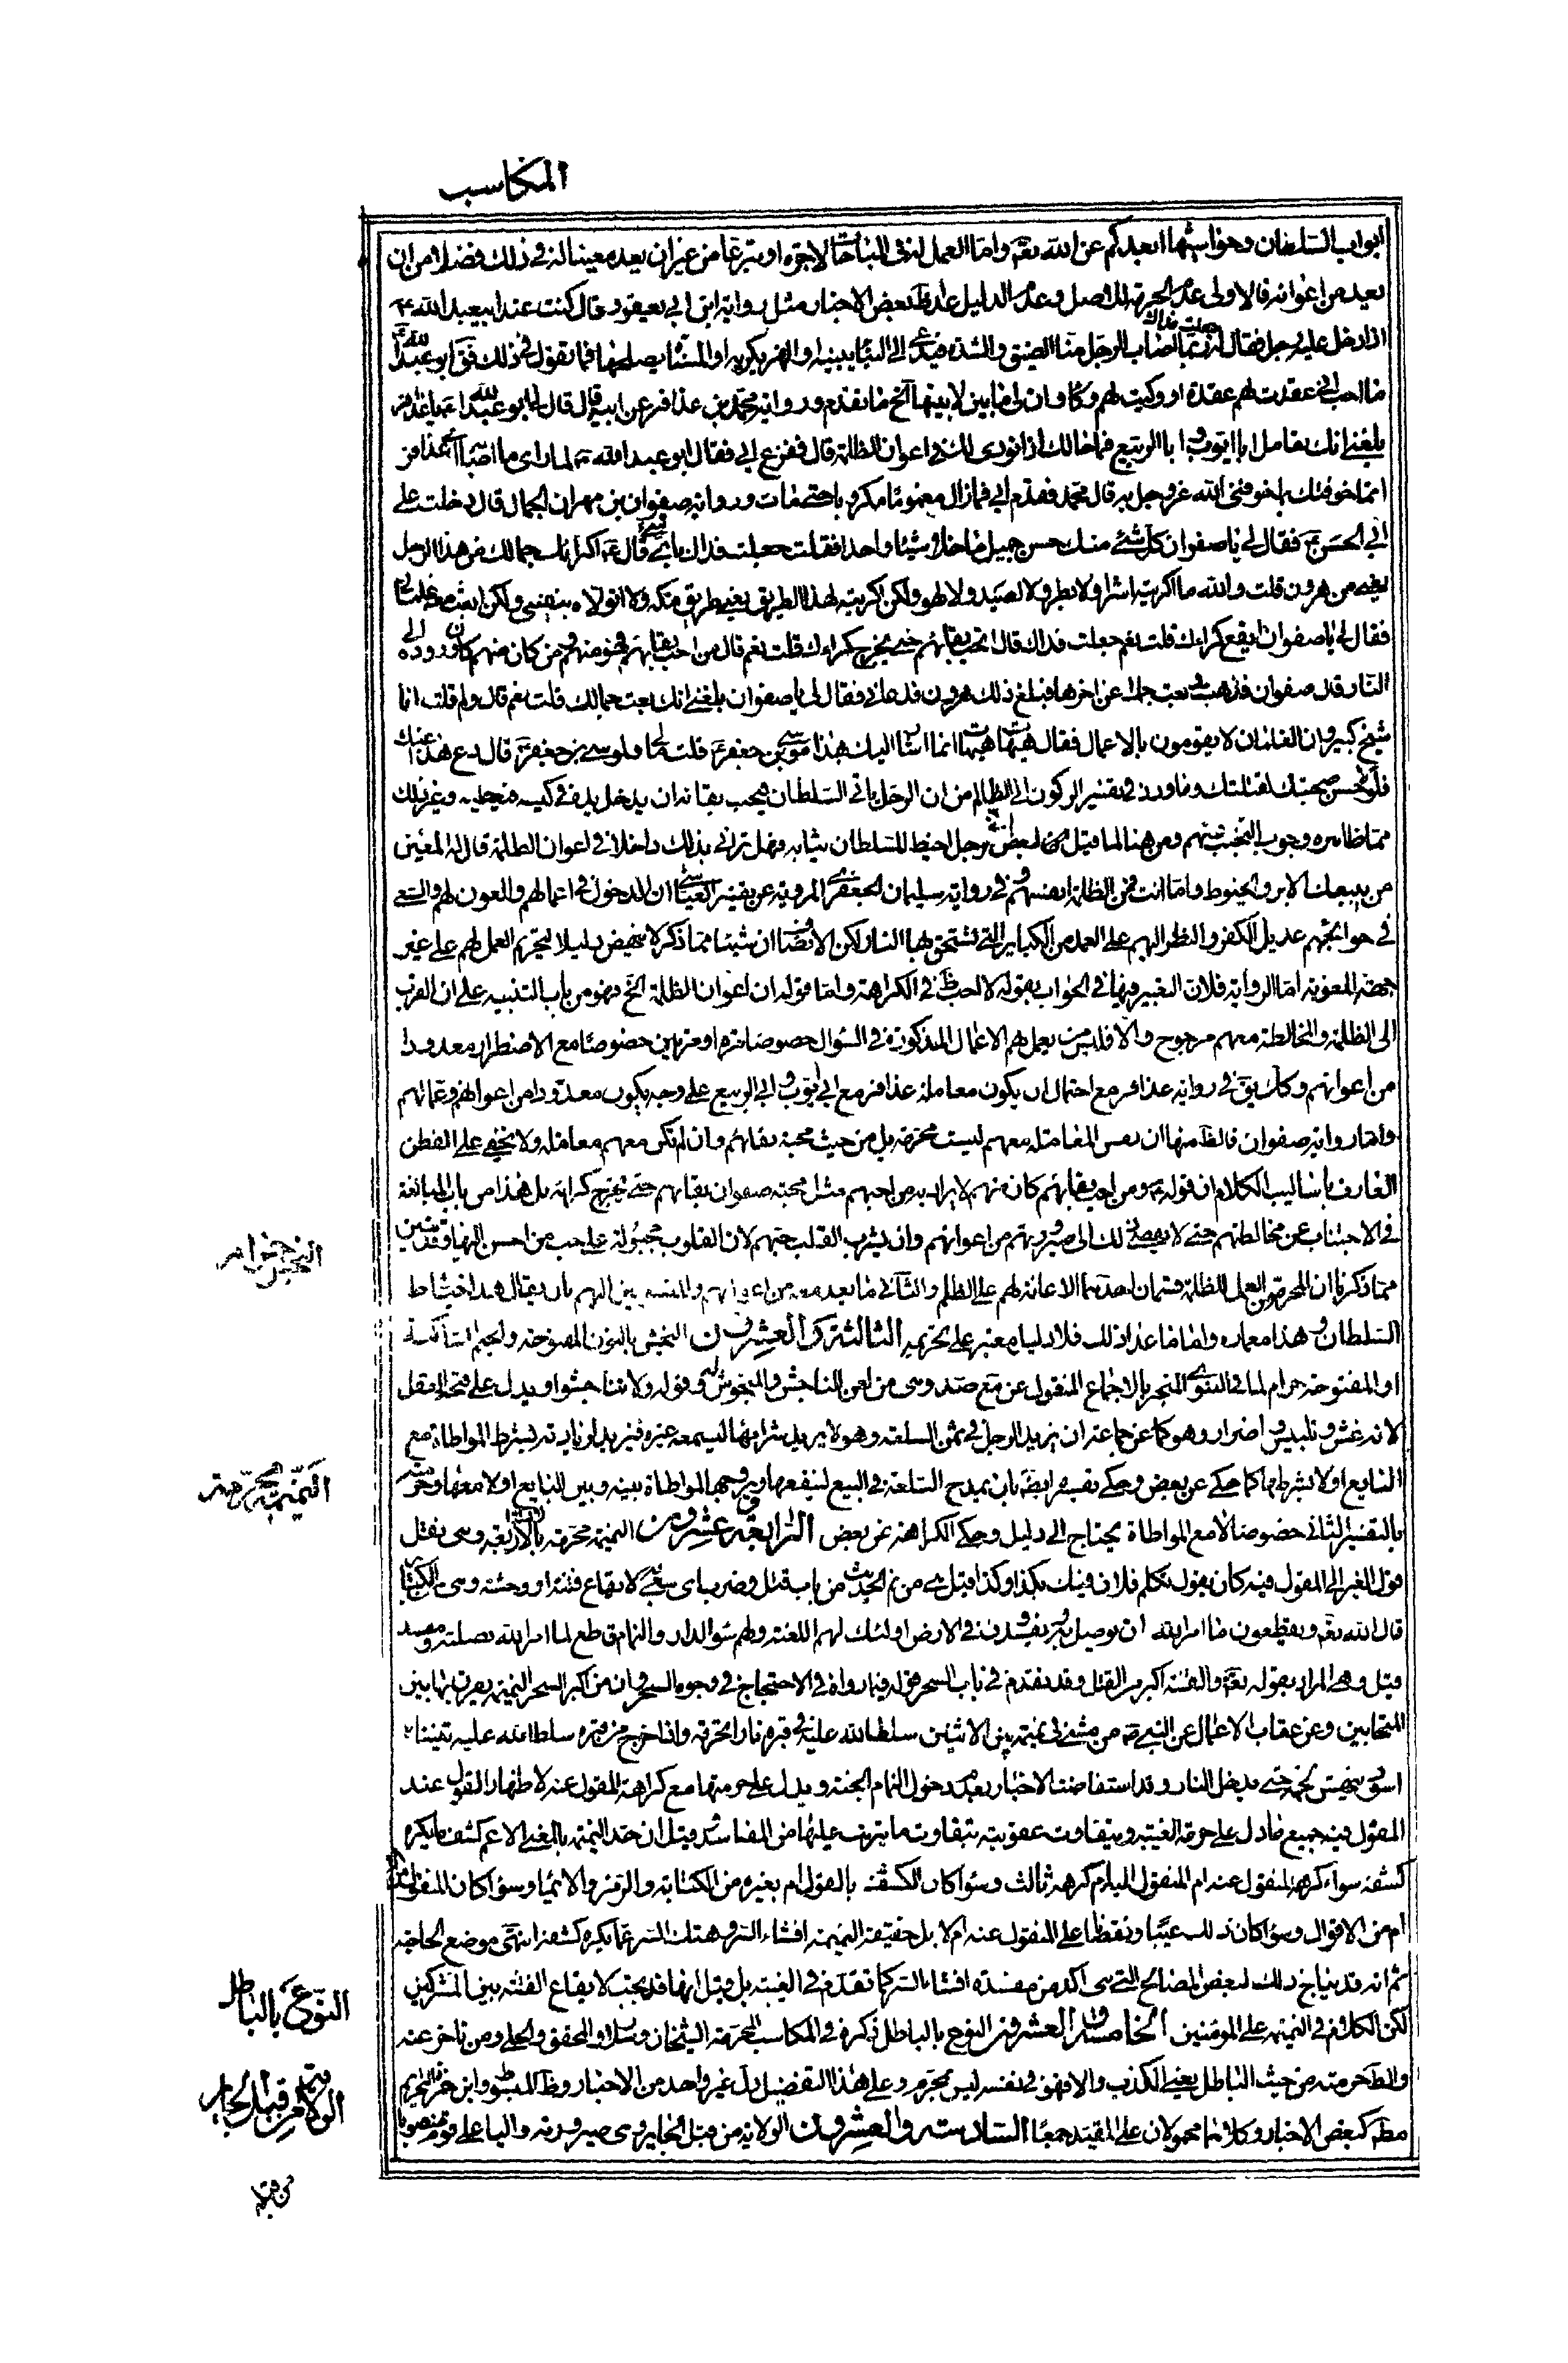 المكاسب
ابواب السلطان وحواشيها ابعدكم عن الله تعه واما العمل له في المباحات لاجرة او تبرعا من غير ان يعد معينا له في ذلك فضلا من ان
يعد من اعوانه فالاولى عدم الحرمة للاصل وعدم الدليل عدا ظ بعض الاخبار مثل رواية ابن ابي يعفور قال كنت عند ابيعبد الله ع
اذ دخل عليه رجل فقال له جعلت فداك ربما اصاب الرجل منا الضيق والشدة فيدعى الى البناء يبنيه او النهر يكريه او المسناة يصلحها فما تقول في ذلك فق ابو عبد الله ع
ما احب اني عقدت لهم عقدة او وكيت لهم وكاء وان لي ما بين لابتيها الخ ما تقدم ورواية محمد بن عذافر عن ابيه قال قال لي ابو عبد الله ع يا عذافر
بلغني انك تعامل ابا ايوب و ابا الربيع فما حالك اذا نودي بك في اعوان الظلمة قال ففزع ابي فقال ابو عبد الله ع لما راى ما اصابه اي عذافر
انما خوفتك بما خوفني الله عز وجل به قال محمد فقدم ابي فما زال مغموما مكروبا حتى مات ورواية صفوان بن مهران الجمال قال دخلت على
ابي الحسن ع فقال لي يا صفوان كل شئ منك حسن جميل ما خلا شيئا واحدا فقلت جعلت فداك اي شئ قال ع اكراءك جمالك من هذا الرجل
يعني هرون قلت والله ما اكريته اشرا ولا بطرا ولا لصيد ولا للهو ولكن اكريته لهذا الطريق يعني طريق مكة ولا اتولاه بنفسي ولكن ابعث معه غلماني
فقال لي يا صفوان ايقع كراءك قلت نعم جعلت فداك قال اتحب بقائهم حتى يخرج كراءك قلت نعم قال من احب بقائهم فهو منهم ومن كان منهم كان وروده الى
النار قال صفوان فذهبت وبعت جمالي عن اخرها فبلغ ذلك هرون فدعاني فقال لي يا صفوان بلغني انك بعت جمالك قلت نعم قال ولم قلت انا
شيخ كبير وان الغلمان لا يقومون بالاعمال فقال هيهات هيهات انما اشار اليك بهذا موسى بن جعفر ع قلت ما لي ولموسى بن جعفر ع قال دع هذا عنك
فلولا حسن صحبتك لقتلتك وما ورد في تفسير الركون الى الظالم من ان الرجل ياتي السلطان فيحب بقائه ان يدخل يده في كيسه فيعطيه وغير ذلك
مما ظاهره وجوب التجنب عنهم ومن هنا لما قيل لبعض رجل اخيط للسلطان ثيابه فهل تراني بذلك داخلا في اعوان الظلمة قال له المعين
من يبيعك الابر والخيوط واما انت فمن الظلمة انفسهم وفي رواية سليمان الجعفري المروية عن تفسير العياشي ان الدخول في اعمالهم والعون لهم والسعي
في حوائجهم عديل الكفر والنظر اليهم على العمد من الكباير التي تستحق بها النار لكن الانصاف ان شيئا مما ذكر لا ينهض دليلا لتحريم العمل لهم على غير
جهة المعونة اما الرواية فلان التعبير فيها في الجواب بقوله لا احب ظ في الكراهة واما قوله ان اعوان الظلمة الخ فهو من باب التنبيه على ان القرب
الى الظلمة والمخالطة معهم مرجوح والا فليس من يعمل لهم الاعمال المذكورة في السؤال خصوصا مرة او مرتين خصوصا مع الاضطرار معدودا
من اعوانهم وكك يق في رواية عذافر مع احتمال ان يكون معاملة عذافر مع ابي ايوب و ابي الربيع على وجه يكون معدودا من اعوانهم وعمالهم
واما رواية صفوان فالظ منها ان نفس المعاملة معهم ليست محرمة بل من حيث محبة بقائهم وان لم تكن معهم معاملة ولا يخفى على الفطن
العارف باساليب الكلام ان قوله ع ومن احب بقائهم كان منهم لا يراد به من احبهم مثل محبة صفوان بقائهم حتى يخرج كرائه بل هذا من باب المبالغة
في الاجتناب عن مخالطتهم حتى لا يفضي ذلك الى صيرورتهم من اعوانهم وان يشرب القلب حبهم لان القلوب مجبولة على حب من احسن اليها وقد تبين
مما ذكرنا ان المحرم من العمل للظلمة قسمان احدهما الاعانة لهم على الظلم والثاني ما يعد معه من اعوانهم والمنسوبين اليهم بان يقال هذا خياط
السلطان و هذا معماره واما ما عدا ذلك فلا دليل معتبر على تحريمه الثالثة والعشرون النجش بالنون المفتوحة والجيم الساكنة
او المفتوحة حرام لما في النبوي المنجبر بالاجماع المنقول عن مع صد وهي من لعن الناجش والمنجوش له وقوله ولا تناجشوا ويدل على قبحه العقل
لانه غش وتلبيس واضرار وهو كما عن جماعة ان يزيد الرجل في ثمن السلعة وهو لا يريد شرائها ليسمعه غيره فيزيد لزيادته بشرط المواطاة مع
البايع او لا بشرطها كما حكي عن بعض وحكي تفسيره ايضا بان يمدح السلعة في البيع لينفعها ويروجها لمواطاة بينه وبين البايع او لا معها وحرمته
بالتفسير الثاني خصوصا لا مع المواطاة يحتاج الى دليل وحكي الكراهة عن بعض الرابعة وعشرون النميمة محرمة بالادلة الاربعة وهي نقل
قول الغير الى المقول فيه كان يقول تكلم فلان فيك بكذا وكذا قيل هي من نم الحديث من باب قتل وضرب اي سعى به لايقاع فتنة او وحشة وهي بالكباير
قال الله تعه ويقطعون ما امر الله به ان يوصل ويفسدون في الارض اولئك لهم اللعنة ولهم سوء الدار والنمام قاطع لما امر الله بصلته ومفسد
قيل وهي المراد بقوله تعه والفتنة اكبر من القتل وقد تقدم في باب السحر قوله فيما رواه في الاحتجاج في وجوه السحر وان من اكبر السحر النميمة يفرق بها بين
المتحابين وعن عقاب الاعمال عن النبي ص من مشى في نميمة بين الاثنين سلط الله عليه في قبره نارا تحرقه واذا خرج من قبره سلط الله عليه تنينا
اسود ينهش لحمه حتى يدخل النار وقد استفاضت الاخبار بعدم دخول النمام الجنة ويدل على حرمتها مع كراهة المقول عنه لاظهار القول عند
المقول فيه جميع ما دل على حرمة الغيبة ويتفاوت عقوبته بتفاوت ما يترتب عليها من المفاسد و قيل ان حد النميمة بالمعنى الاعم كشف ما يكره
كشفه سواء كرهه المنقول عنه ام المنقول اليه ام كرهه ثالث وسواء كان الكشف بالقول ام بغيره من الكتابة والرمز والايماء وسواء كان المنقول
ام من الاقوال وسواء كان ذلك عيبا ونقصا على المنقول عنه ام لا بل حقيقة النميمة افشاء السر وهتك الستر عما يكره كشفه انتهى موضع الحاجة
ثم انه قد يباح ذلك لبعض المصالح التي هي اكد من مفسدة افشاء السر كما تقدم في الغيبة بل قيل انها قد تجب لايقاع الفتنة بين المشركين
لكن الكلام في النميمة على المؤمنين الخامسة والعشرون النوح بالباطل ذكره في المكاسب المحرمة الشيخان وسلار والمحقق والحلي ومن تاخر عنه
والظ حرمته من حيث الباطل يعني الكذب والا فهو في نفسه ليس بمحرم وعلى هذا التفصيل دل غير واحد من الاخبار وظ المبسوط وابن حمزة التحريم
مط كبعض الاخبار وكلاهما محمولان على المقيد جمعا السادسة والعشرون الولاية من قبل الجاير وهي صيرورته واليا على قوم منصوبا
النجش حرام
النميمة محرمة
النوح بالباطل
الولاية من قبل الجاير
من قبله